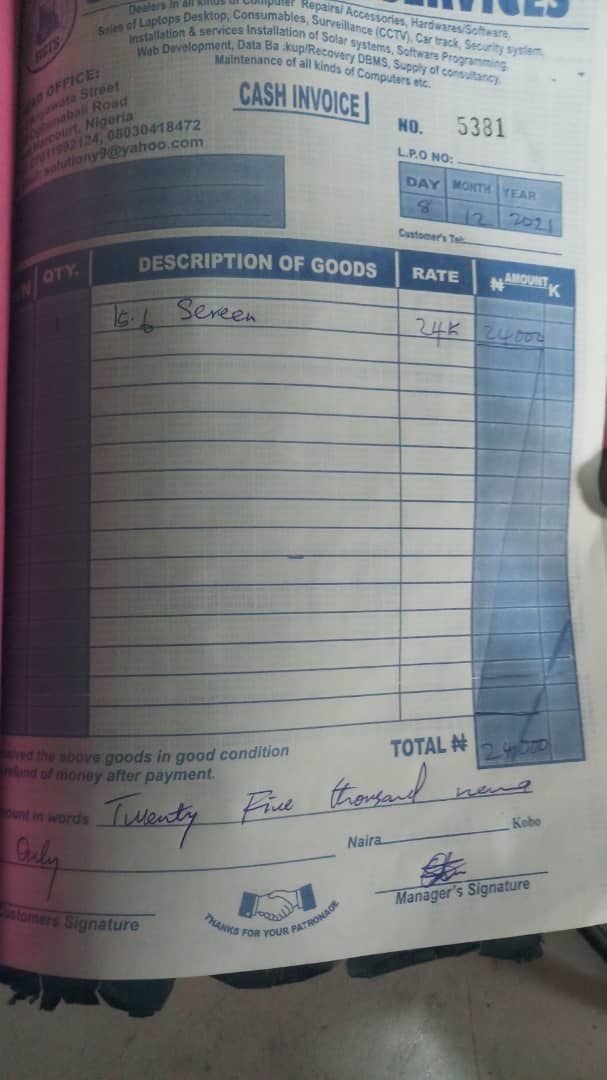 SERVICES
Dealers in all kinds of Computer Repairs/ Accessories, Hardwares/Software.
Sales of Laptops Desktop, Consumables, Surveillance (CCTV), Car track, Security system,
Installation & services Installation of Solar systems, Software Programming.
Web Development, Data Ba .kup/Recovery DBMS, Supply of consultancy.
Maintenance of all kinds of Computers etc.
OFFICE:
Street
Road
Harcourt, Nigeria
08030418472
solutiony9@yahoo.com
CASH INVOICE
NO. 5381
L.P.O NO:
DAY MONTH YEAR
8 12 2021
Customer's Tel:
QTY. DESCRIPTION OF GOODS RATE ₦ AMOUNT K
15.6 Screen 24K 24000
TOTAL ₦ 24,000
the above goods in good condition
refund of money after payment.
in words Twenty Five thousand
Only Naira Kobo
Customers Signature
THANKS FOR YOUR PATRONAGE
Manager's Signature